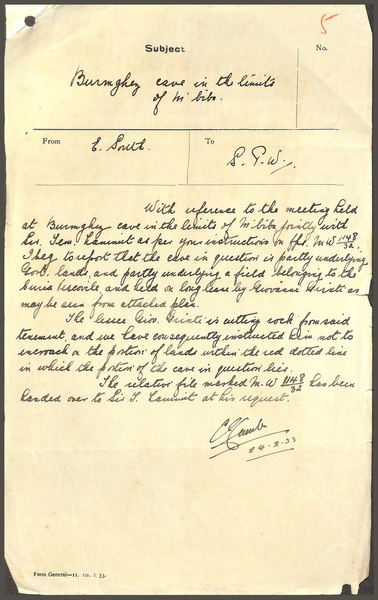 5
Subject
No.
Burmghez cave in the limits
of M'biba.
From
To
E. South.
S. P. W.
With reference to the meeting held
at Burmghez cave in the limits of M'biba jointly with
Sir. Tem. Zammit as per your instructions on M. W 1148/32
I beg to report that the cave in question is partly underlying
Govt. lands, and partly underlying a field belonging to the
Curia Vescovile and held on long lease by Giovanni Grinti as
may be seen from attached plan.
The lessee Giov. Grinti is cutting rock from said
tenement, and we have consequently instructed him not to
encroach on the portion of lands within the red dotted line
in which the portion of the cave in question lies.
The relative file marked M. W 1148/32 has been
handed over to Sir T. Zammit at his request.
24-2-33
Form General—11. 12s. 2. 33.